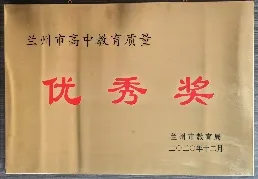 兰州市高中教育质量
优秀奖
兰州市教育局
二〇二〇年十二月